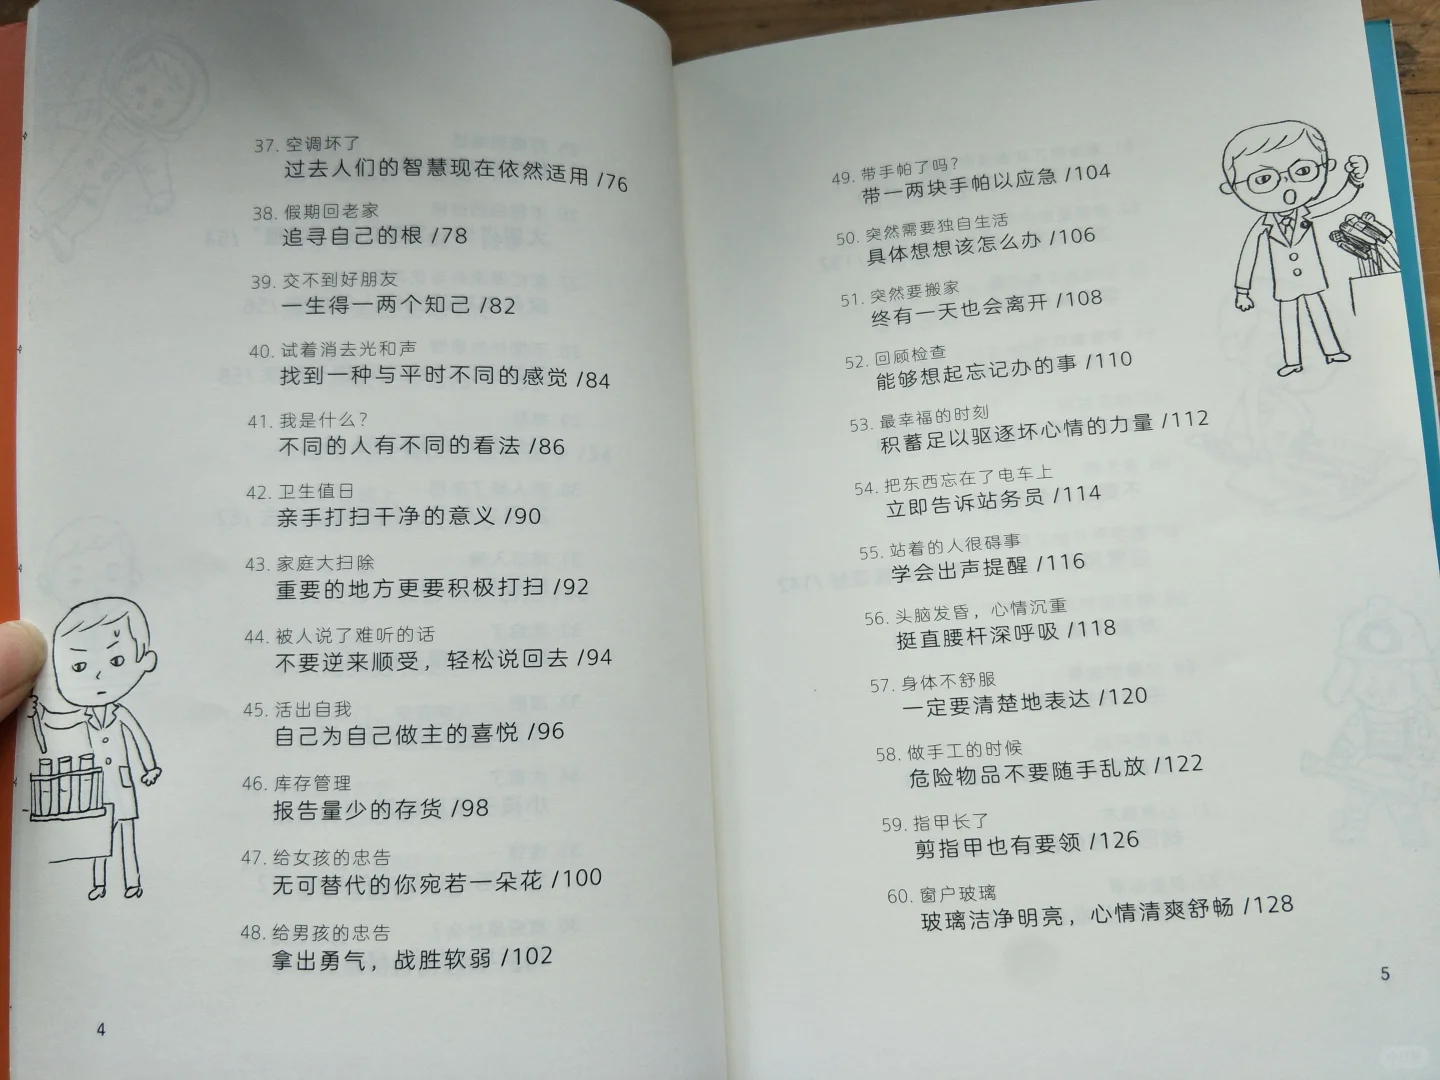 37. 空调坏了
过去人们的智慧现在依然适用 /76
38. 假期回老家
追寻自己的根 /78
39. 交不到好朋友
一生得一两个知己 /82
40. 试着消去光和声
找到一种与平时不同的感觉 /84
41. 我是什么？
不同的人有不同的看法 /86
42. 卫生值日
亲手打扫干净的意义 /90
43. 家庭大扫除
重要的地方更要积极打扫 /92
44. 被人说了难听的话
不要逆来顺受，轻松说回去 /94
45. 活出自我
自己为自己做主的喜悦 /96
46. 库存管理
报告量少的存货 /98
47. 给女孩的忠告
无可替代的你宛若一朵花 /100
48. 给男孩的忠告
拿出勇气，战胜软弱 /102
4
49. 带手帕了吗？
带一两块手帕以应急 /104
50. 突然需要独自生活
具体想想该怎么办 /106
51. 突然要搬家
终有一天也会离开 /108
52. 回顾检查
能够想起忘记办的事 /110
53. 最幸福的时刻
积蓄足以驱逐坏心情的力量 /112
54. 把东西忘在了电车上
立即告诉站务员 /114
55. 站着的人很碍事
学会出声提醒 /116
56. 头脑发昏，心情沉重
挺直腰杆深呼吸 /118
57. 身体不舒服
一定要清楚地表达 /120
58. 做手工的时候
危险物品不要随手乱放 /122
59. 指甲长了
剪指甲也有要领 /126
60. 窗户玻璃
玻璃洁净明亮，心情清爽舒畅 /128
5